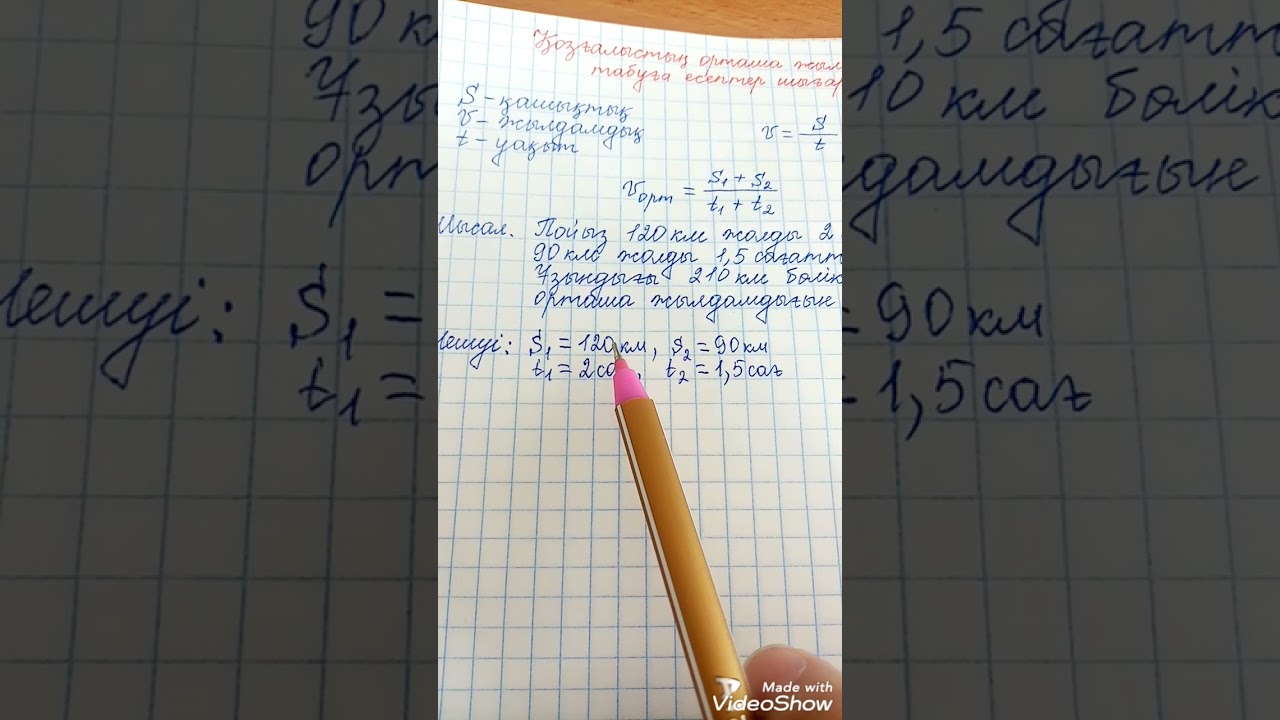 Қозғалыстың орташа жыл
табуға есептер шығар
S - қашықтық
v - жылдамдық
t - уақыт
v = S/t
vорт = S1 + S2 / t1 + t2
Мысал. Пойыз 120 км жолды 2
90 км жолды 1,5 сағатт
Ұзындығы 210 км бөлік
орташа жылдамдығын
Шешуі: S1 = 120 км, S2 = 90 км
t1 = 2 сағ, t2 = 1,5 сағ
Made with
VideoShow